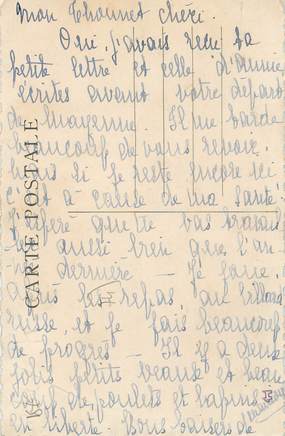 Mon Thounet chéri.
Oui, j'avais reçu ta
petite lettre et celle d'Annie
écrites avant votre départ
de Mayenne. Il me tarde
beaucoup de vous revoir.
mais si je reste encore ici
c'est à cause de ma santé.
J'espère que tu vas
aussi bien que l'an
dernière — Je joue,
après les repas, au billard
russe, et je fais beaucoup
de progrès — Il y a deux
jolis petits veaux et beau
coup de poulets et lapins
en liberté. Bons baisers de
CARTE POSTALE